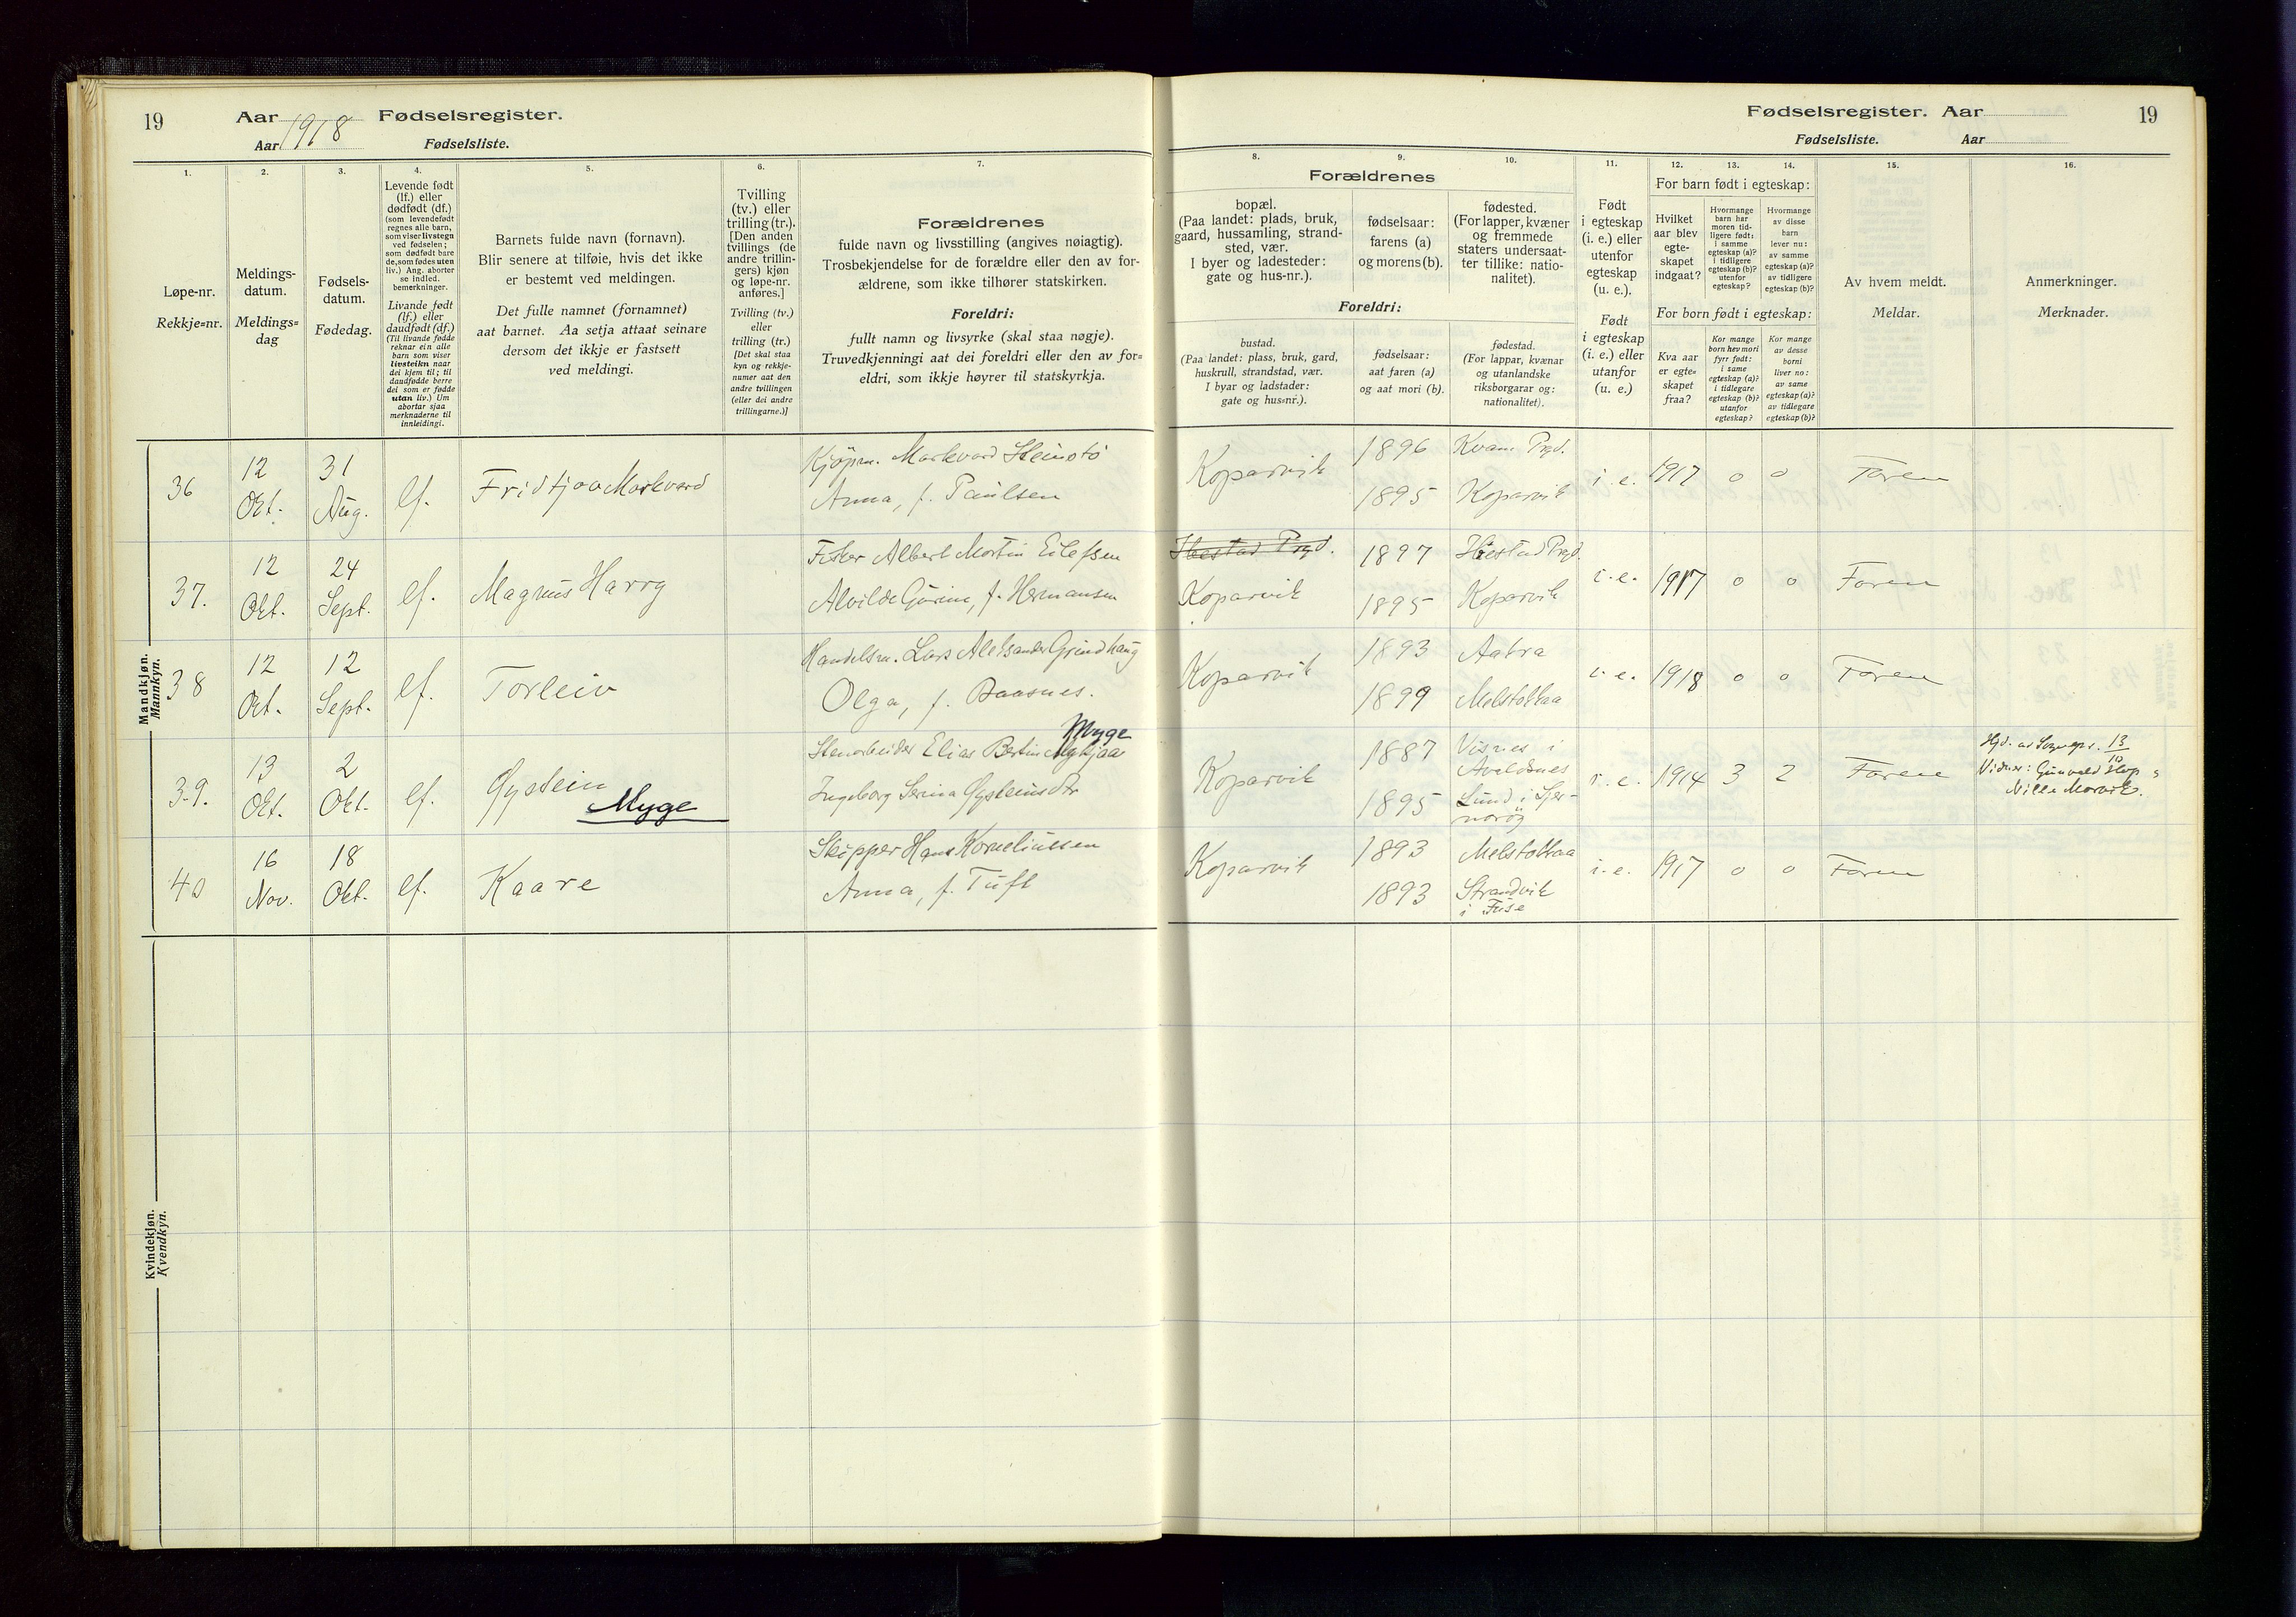 19 Aar 1918 Fødselsregister.
Aar Fødselsliste.
Fødselsregister. Aar 19
Fødselsliste. Aar
1. 2. 3. 4. 5. 6. 7.
Løpe-nr.
Rekkje=nr.
Meldings-
datum.
Meldings=
dag
Fødsels-
datum.
Fødedag.
Levende født
(lf.) eller
dødfødt (df.)
(som levendefødt
regnes alle barn,
som viser livstegn
ved fødselen;
som dødfødt bare
de, som fødes uten
liv.) Ang. aborter
se indled.
bemerkninger.
Livande født
(lf.) eller
daudfødt (df.)
(Til livande fødde
reknar ein alle
barn som viser
livsteikn naar
dei kjem til; til
daudfødde berre
dei som er fødde
utan liv.) Um
abortar sjaa
merknaderne til
innleidingi.
Barnets fulde navn (fornavn).
Blir senere at tilføie, hvis det ikke
er bestemt ved meldingen.
Det fulle namnet (fornamnet)
aat barnet. Aa setja attaat seinare
dersom det ikkje er fastsett
ved meldingi.
Tvilling
(tv.) eller
trilling (tr.).
[Den anden
tvillings (de
andre trillin-
gers) kjøn
og løpe-nr.
anføres.]
Tvilling (tv.)
eller
trilling (tr.)
[Det skal staa
kyn og rekkje-
numer aat den
andre tvillingen
(eller dei andre
trillingarne.)]
Forældrenes
fulde navn og livsstilling (angives nøiagtig).
Trosbekjendelse for de forældre eller den av for-
ældrene, som ikke tilhører statskirken.
Foreldri:
fullt namn og livsyrke (skal staa nøgje).
Truvedkjenningi aat dei foreldri eller den av for=
eldri, som ikkje høyrer til statskyrkja.
8. 9. 10. 11. 12. 13. 14. 15. 16.
Forældrenes
bopæl.
(Paa landet: plads, bruk,
gaard, hussamling, strand-
sted, vær.
I byer og ladesteder:
gate og hus-nr.).
fødselsaar:
farens (a)
og morens (b).
fødested.
(For lapper, kvæner
og fremmede
staters undersaat-
ter tillike: natio-
nalitet).
Foreldri:
bustad.
(Paa landet: plass, bruk, gard,
huskrull, strandstad, vær.
I byar og ladstader:
gate og hus=nr.).
fødselsaar:
aat faren (a)
og aat mori (b).
fødestad.
(For lappar, kvænar
og utanlandske
riksborgarar og:
nationalitet).
Født
i egteskap
(i. e.) eller
utenfor
egteskap
(u. e.).
Født
i egteskap
(i. e.) eller
utanfor
(u. e.)
For barn født i egteskap:
Hvilket
aar blev
egte-
skapet
indgaat?
Hvormange
barn har
moren tid-
ligere født:
i samme
egteskap (a)?
i tidligere
egteskap (b)?
utenfor
egteskap?
Hvormange
av disse
barn
lever nu:
av samme
egteskap (a)?
av tidligere
egteskap (b)?
For born født i egteskap:
Kva aar
er egte=
skapet
fraa?
Kor mange
born hev mori
fyrr født:
i same
egteskap (a)?
i tidlegare
egteskap (b)?
utanfor
egteskap?
Kor mange
av desse
borni
liver no:
av same
egteskap (a)?
av tidlegare
egteskap (b)?
Av hvem meldt.
Meldar.
Anmerkninger.
Merknader.
Mandkjøn.
Mannkyn.
36 12 Okt. 31 Aug. lf. Fridtjov Markvard
Kjøpm. Markvard Steinstø
Anna, f. Paulsen
Koparvik 1896 Kvam Prgd.
1895 Koparvik
i. e. 1917 0 0 Faren
37. 12 Okt. 24 Sept. lf. Magnus Harry
Fisker Albert Martin Eilefsen
Alvilde Gurine, f. Hermansen
Ibestad Prgd. 1897 Ibestad Prgd.
Koparvik 1895 Koparvik
i. e. 1917 0 0 Faren
38 12 Okt. 12 Sept. lf. Torleiv
Handelsm. Lars Aleksander Grindhaug
Olga, f. Baasnes.
Koparvik 1893 Aakra
1899 Melstokkaa
i. e. 1918 0 0 Faren
39. 13 Okt. 2 Okt. lf. Øystein
Myge
Myge
Stenarbeider Elias Bertin
Ingeborg Serina Øysteinsdtr
Koparvik 1887 Visnes i
Avaldsnes
1895 Lund i Sjer-
narøy
i. e. 1914 3 2 Faren
Hjd. av Sognepr. 13/10
Vidner: Gunvald
Nille
40 16 Nov. 18 Okt. lf. Kaare
Skipper Hans Korneliussen
Anna, f. Tuft
Koparvik 1893 Melstokkaa
1893 Strandvik
i Fuse
i. e. 1917 0 0 Faren
Kvindekjøn.
Kvendkyn.